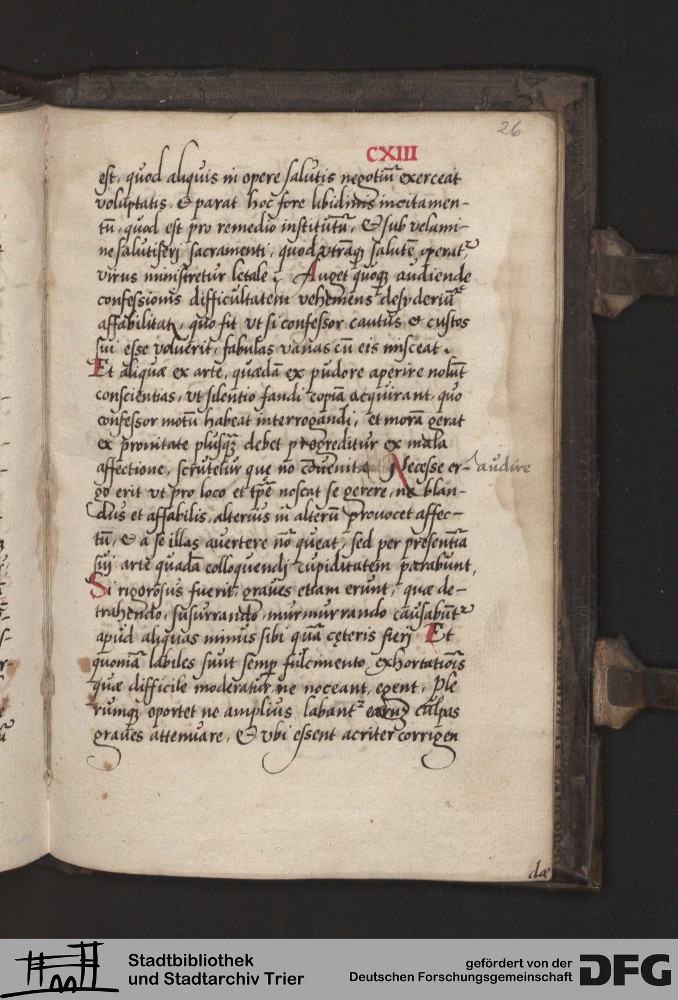 26
CXIII
est, quod aliquis in opere salutis negotiū exerceat
voluptatis, & parat hoc fore libidinis incitamen-
tū, quod est pro remedio institutū, & sub velami-
ne salutiferi sacramenti, quod vtrāqȝ salutē operat᷑
virus ministretur letale. Auget quoqȝ audiende
confessionis difficultatem vehemens desyderiū
affabilitatis, quo fit vt si confessor cautus & custos
sui esse voluerit, fabulas vanas cū eis misceat.
Et aliquæ ex arte, quædā ex pudore aperire nolūt
conscientias, vt silentio fandi copiā acquirant, quo
confessor motū habeat interrogandi, et morā gerat
ex pronitate plusqȝ debet progreditur ex mala
affectione, scrutetur quę nō cōuenit Necesse er- audire
go erit vt pro loco et tp̄e noscat se gerere, ne blan-
dus et affabilis, alterius in alterū provocet affec-
tū, & a se illas auertere nō queat, sed per presentiā
sui arte quadā colloquendi cupiditatem parabunt,
Si rigorosus fuerit, graues etiam erunt, quæ de-
trahendo, susurrando, murmurrando causabunt᷑
apud aliquas minus sibi quā cęteris fieri Et
quoniā labiles sunt semp̄ fulcimento exhortatiōis
quæ difficile moderatur, ne noceant, egent, Ple
rumqȝ oportet ne amplius labant᷑ earum culpas
graues attenuare, & vbi essent acriter corrigen
dæ
Stadtbibliothek
und Stadtarchiv Trier
gefördert von der
Deutschen Forschungsgemeinschaft
DFG